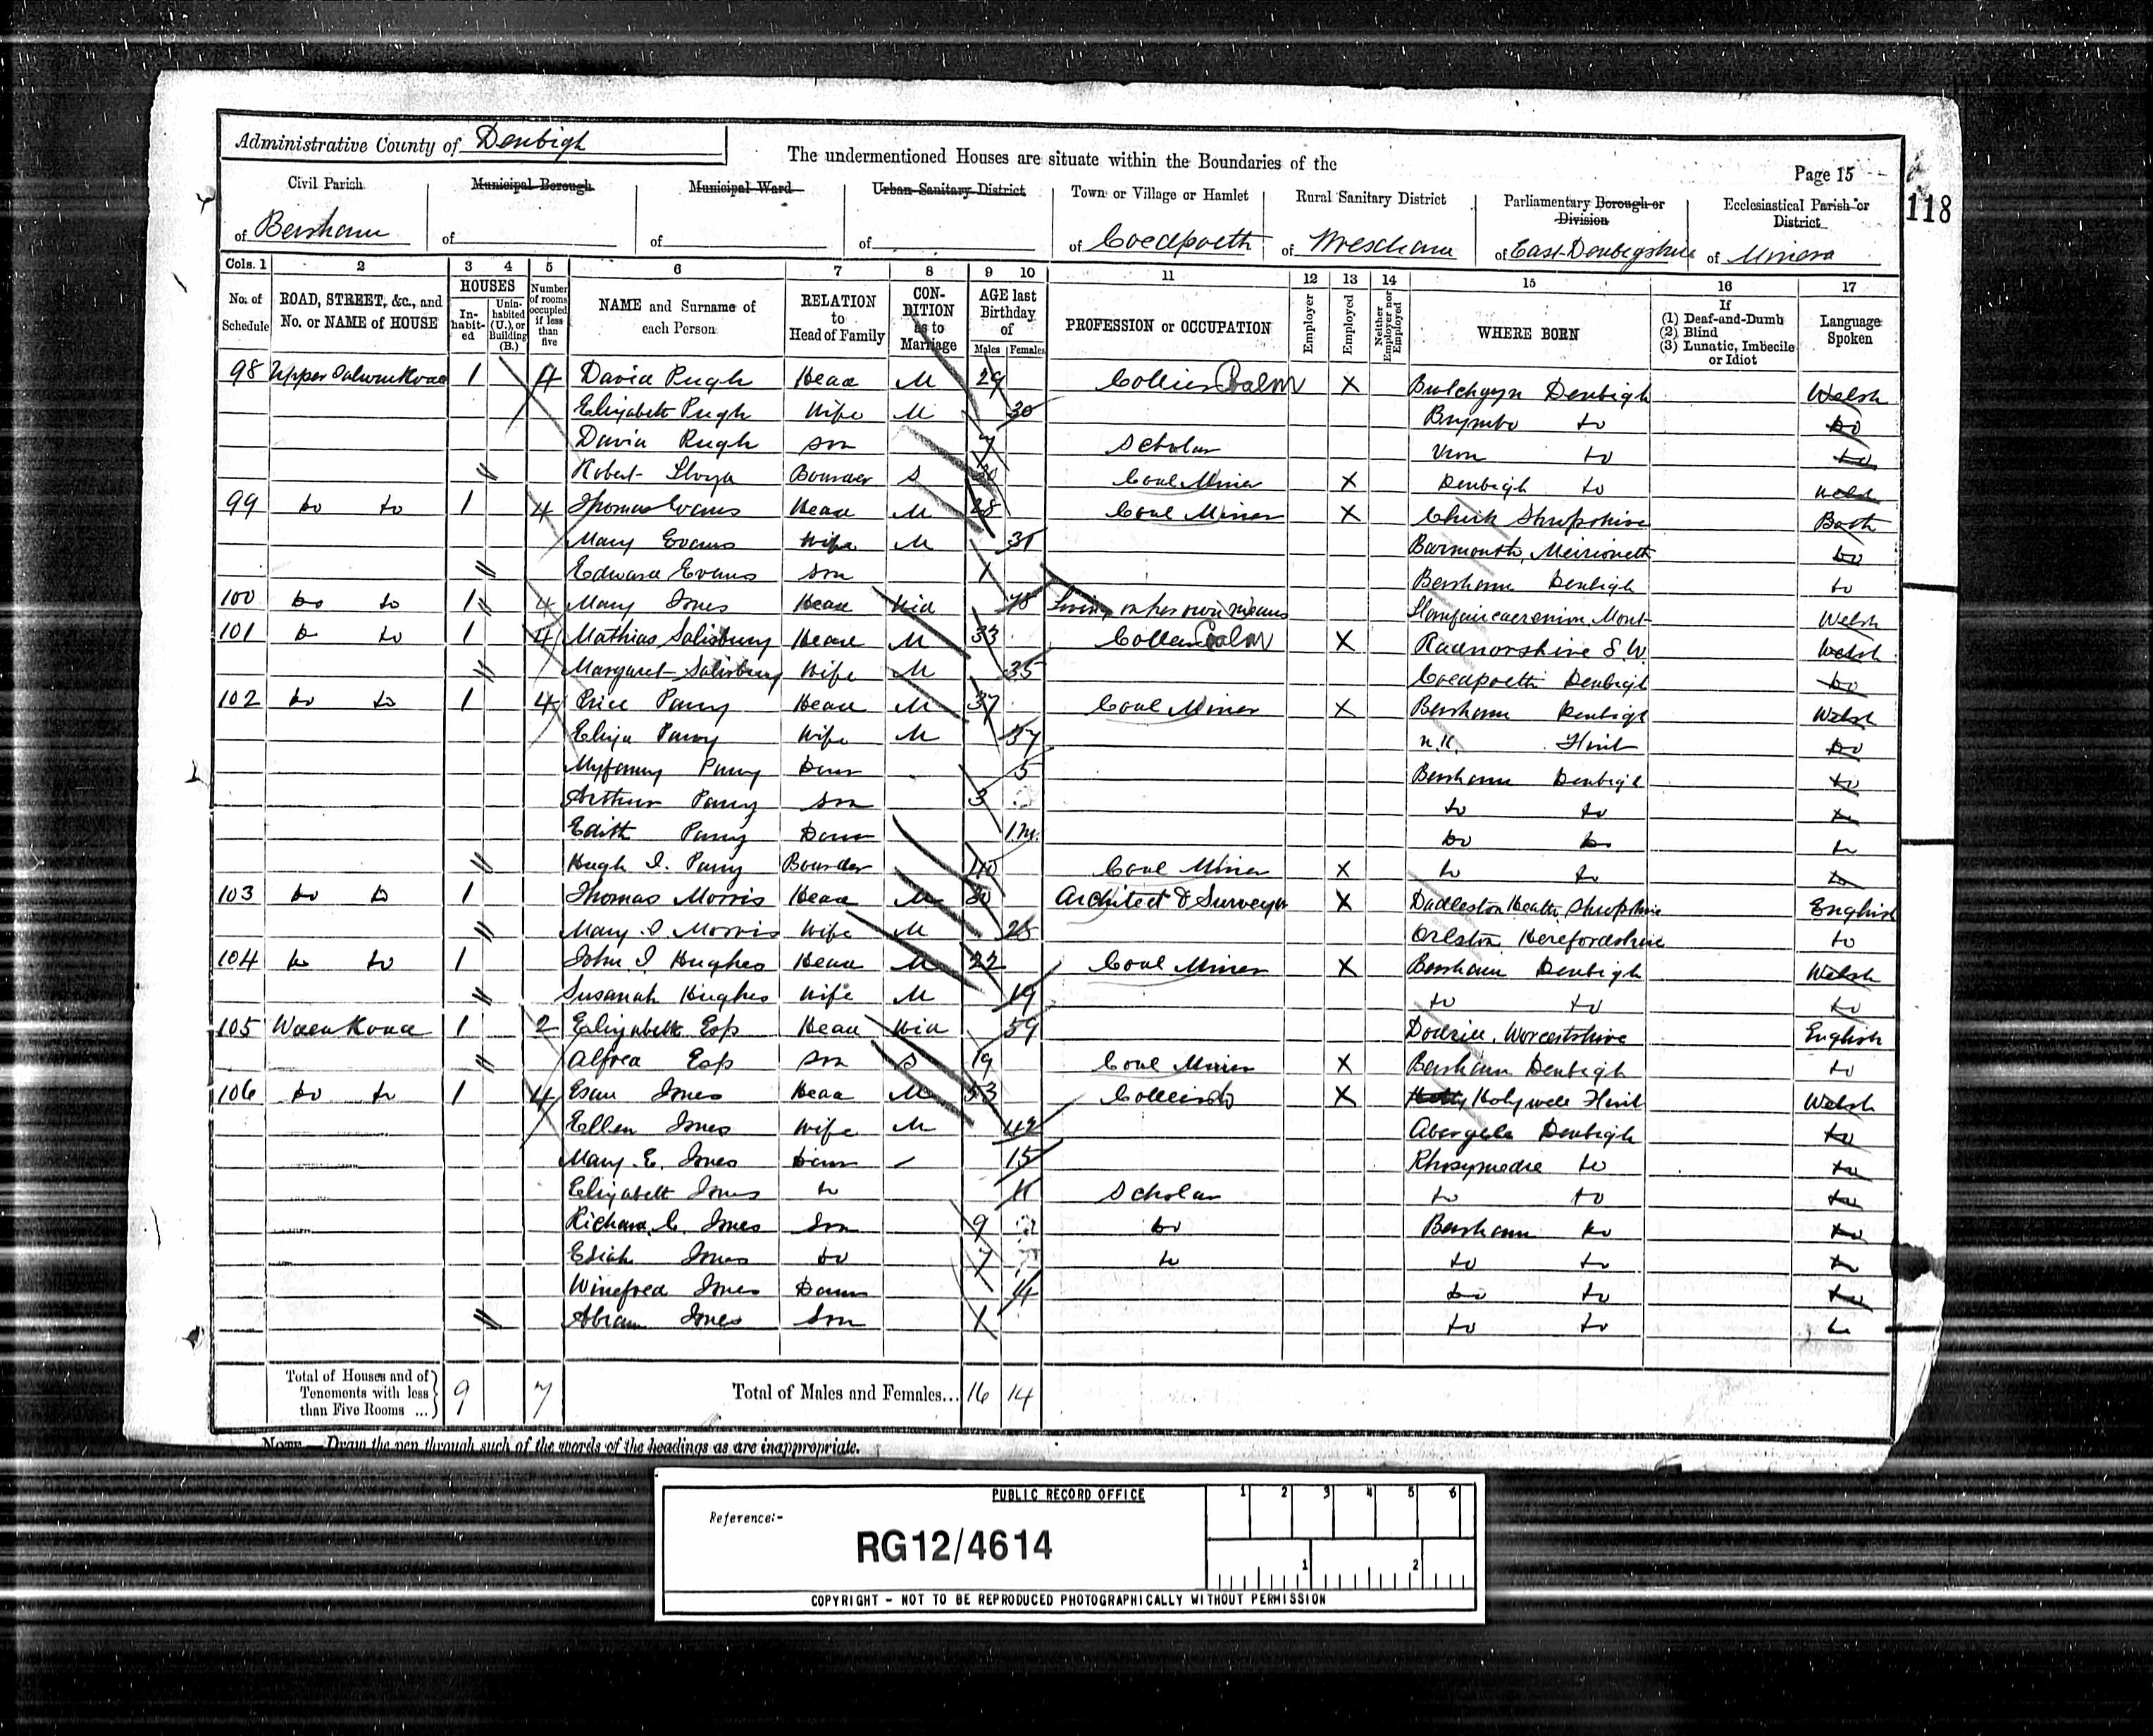 Administrative County of Denbigh
The undermentioned Houses are situate within the Boundaries of the
Page 15
118
Civil Parish
Municipal Borough
Municipal Ward
Urban Sanitary District
Town or Village or Hamlet
Rural Sanitary District
Parliamentary Borough or Division
Ecclesiastical Parish or District
of Bersham of of of of Coedpoeth of Wrexham of East Denbigshire of Minera
Cols. 1 2 3 4 5 6 7 8 9 10 11 12 13 14 15 16 17
No. of Schedule
ROAD, STREET, &c., and No. or NAME of HOUSE
HOUSES
In-habit-ed
Unin-habited (U.), or Building (B.)
Number of rooms occupied if less than five
NAME and Surname of each Person
RELATION to Head of Family
CON-DITION as to Marriage
AGE last Birthday of
Males Females
PROFESSION or OCCUPATION
Employer
Employed
Neither Employer nor Employed
WHERE BORN
If
(1) Deaf-and-Dumb
(2) Blind
(3) Lunatic, Imbecile or Idiot
Language Spoken
98 Upper Road 1 4 David Pugh Head M 29 Collier Coal M X Bwlchgyn Denbigh Welsh
Elizabeth Pugh Wife M 30 Brymbo do do
David Pugh Son 7 Scholar Vron do do
Robert Lloyd Boarder S 20 Coal Miner X Denbigh do Welsh
99 do do 1 4 Thomas Evans Head M 28 Coal Miner X Chirk Shropshire Both
Mary Evans Wife M 31 Barmouth, Meirioneth do
Edward Evans Son 1 Bersham Denbigh do
100 do do 1 4 Mary Jones Head Wid 78 Living on her own means Llanfaircaereinion Mont Welsh
101 do do 1 4 Mathias Salisbury Head M 33 Collier Coal M X Radnorshire S.W. Welsh
Margaret Salisbury Wife M 35 Coedpoeth Denbigh do
102 do do 1 4 Price Parry Head M 37 Coal Miner X Bersham Denbigh Welsh
Eliza Parry Wife M 37 N.K. Flint do
Myfanwy Parry Daur 5 Bersham Denbigh do
Arthur Parry Son 3 do do do
Edith Parry Daur 1 m. do do do
Hugh I. Parry Boarder 40 Coal Miner X do do do
103 do do 1 Thomas Morris Head M 30 Architect & Surveyor X Dudleston Heath, Shropshire English
Mary I. Morris Wife M 25 Orleton Herefordshire do
104 do do 1 John I. Hughes Head M 22 Coal Miner X Bersham Denbigh Welsh
Susanah Hughes Wife M 19 do do do
105 Road 1 2 Elizabeth Head Wid 59 Worcestshire English
Alfred Son S 19 Coal Miner X Bersham Denbigh do
106 do do 1 4 Esau Jones Head M 53 Collier do X Holywell Flint Welsh
Ellen Jones Wife M 42 Abergele Denbigh do
Mary. E. Jones Daur 15 Rhosymedre do do
Elizabeth Jones do 11 Scholar do do do
Richard. C. Jones Son 9 do Bersham do do
Esiah Jones do 7 do do do do
Winefred Jones Daur 4 do do do
Abram Jones Son 1 do do do
Total of Houses and of Tenements with less than Five Rooms ... 9 7 Total of Males and Females... 16 14
NOTE.—Draw the pen through such of the words of the headings as are inappropriate.
PUBLIC RECORD OFFICE
1 2 3 4 5 6
Reference:-
RG12/4614
1 2
COPYRIGHT - NOT TO BE REPRODUCED PHOTOGRAPHICALLY WITHOUT PERMISSION